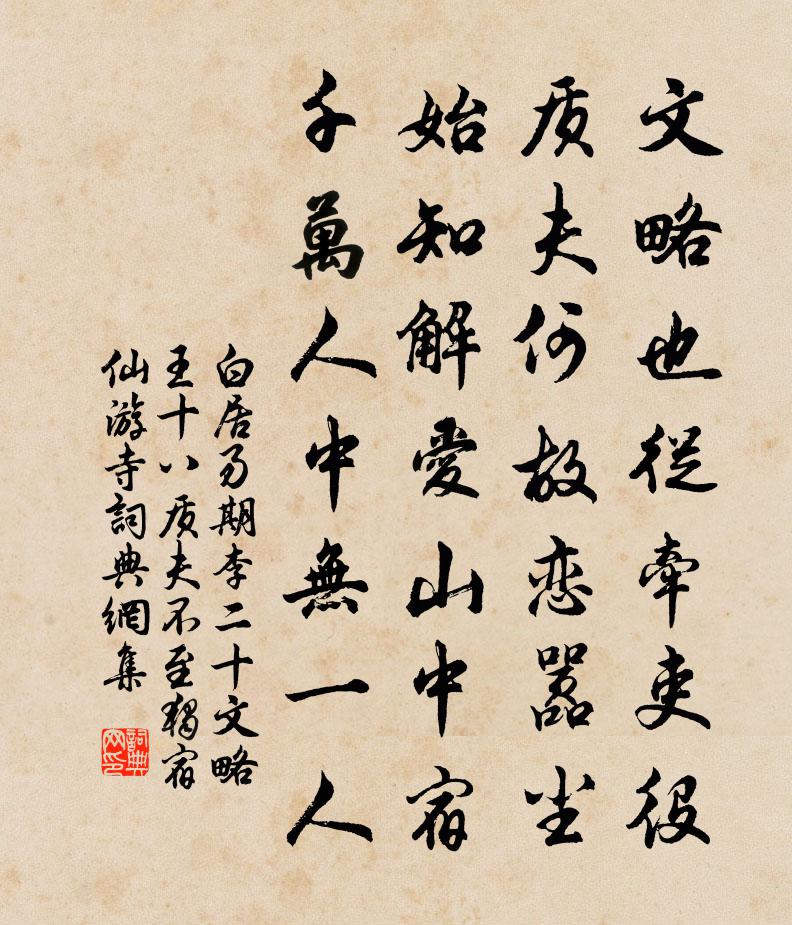 文略也從牽吏役
质夫何故恋嚣尘
始知解愛山中宿
千萬人中無一人
白居易期李二十文略
王十八质夫不至獨宿
仙游寺詞典網集
詞典网印